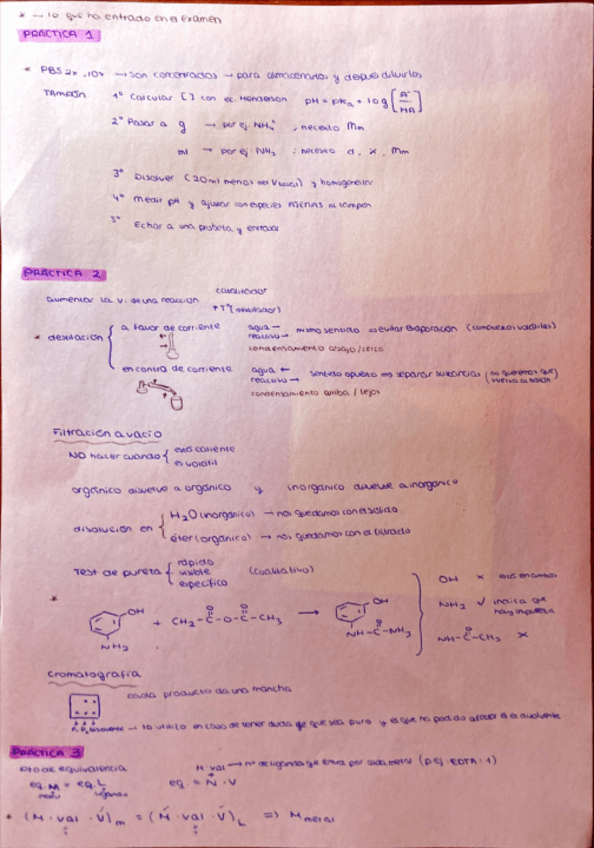 * → lo que ha entrado en el examen
PRÁCTICA 1
* PBS 2x, 10x → son concentrados → para almacenarlos y después diluirlos
Tampón 1º Calcular [ ] con ec. Henderson pH = pKa + log [A⁻/HA]
2º Pasar a g → por ej. NH₄⁺ ; necesito Mm
ml → por ej NH₃ ; necesito d, %, Mm
3º Disolver (20 ml menos del Vtotal) y homogeneizar
4º Medir pH y ajustar con especies del tampón
5º Echar a una probeta y enrasar
PRÁCTICA 2
aumentar la v. de una reacción catalizador
↑Tª (destilador)
* destilación a favor de corriente agua → mismo sentido ⇒ evitar evaporación (compuestos volátiles)
reactivo →
condensamento abajo / cerca
en contra de corriente agua ← sentido opuesto ⇒ separar sustancias (no queremos que
reactivo → vuelva al balón)
condensamento arriba / lejos
Filtración a vacío
NO hacer cuando está caliente
es volátil
orgánico disuelve a orgánico y inorgánico disuelve a inorgánico
disolución en H₂O (inorgánico) → nos quedamos con el sólido
éter (orgánico) → nos quedamos con el filtrado
Test de pureza rápido
visible (cualitativo)
específico
* OH + CH₂-C-O-C-CH₃ → OH OH x
O O NH-C-NH₂ NH₂ ✓ indica que hay impureza
NH₂ O NH-C-CH₃ x
Cromatografía
cada producto da una mancha
disolvente → lo utilizo en caso de tener duda de que sea puro y el que ha podido es el disolvente
PRÁCTICA 3
Pto de equivalencia M val → nº de ligandos que entra por cada metal (p ej: EDTA: 1)
eq. M = eq. L eq. = N · V
metal ligando
* (M · val · V)m = (M · val · V)L ⇒ M metal